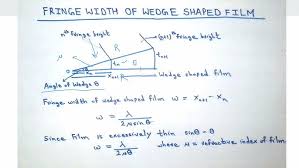 FRINGE WIDTH OF WEDGE SHAPED FILM
nth fringe bright
(n+1)th fringe bright
R
μ
tn
tn+1
θ
xn
xn+1
Wedge shaped film
Angle of Wedge θ
Fringe width of wedge shaped film ω = xn+1 - xn
ω = λ / 2μsinθ
Since Film is excessively thin sinθ ~ θ
ω = λ / 2μθ where μ = refractive index of film